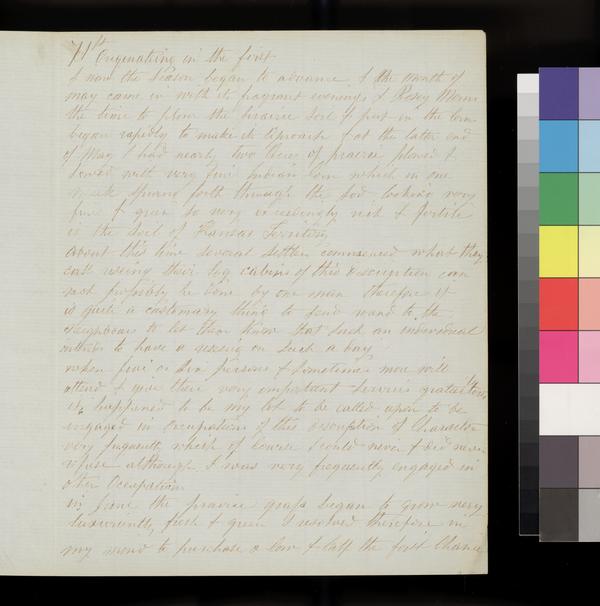 71st Originating in the first
& now the season began to advance & the month of
may came in with its fragrant evenings & Rosey Morns
the time to plow the prairie soil & put in the corn
began rapidly to make its approach & at the latter end
of May I had nearly two Acres of prairie plowed &
sowed with very fine Indian Corn which in one
week sprang forth through the sod looking very
fine & green so very exceedingly rich & fertile
is the soil of Kansas Territory
about this time several settlers commenced what they
call using their log cabins of this description can
not possibly be done by one man therefore it
is quite a customary thing to send word to the
neighbours to let them know that such an individual
intends to have a raising on such a day
when five or six persons & sometimes more will
attend & give there very important service gratuitous
it happened to be my lot to be called upon to be
engaged in occupations of this description of Character
very frequently which of course I could never & did never
refuse although I was very frequently engaged in
other Occupation
in June the prairie grass began to grow very
luxuriently, fresh & green I resolved therefore in
my mind to purchase a cow & calf the first chance